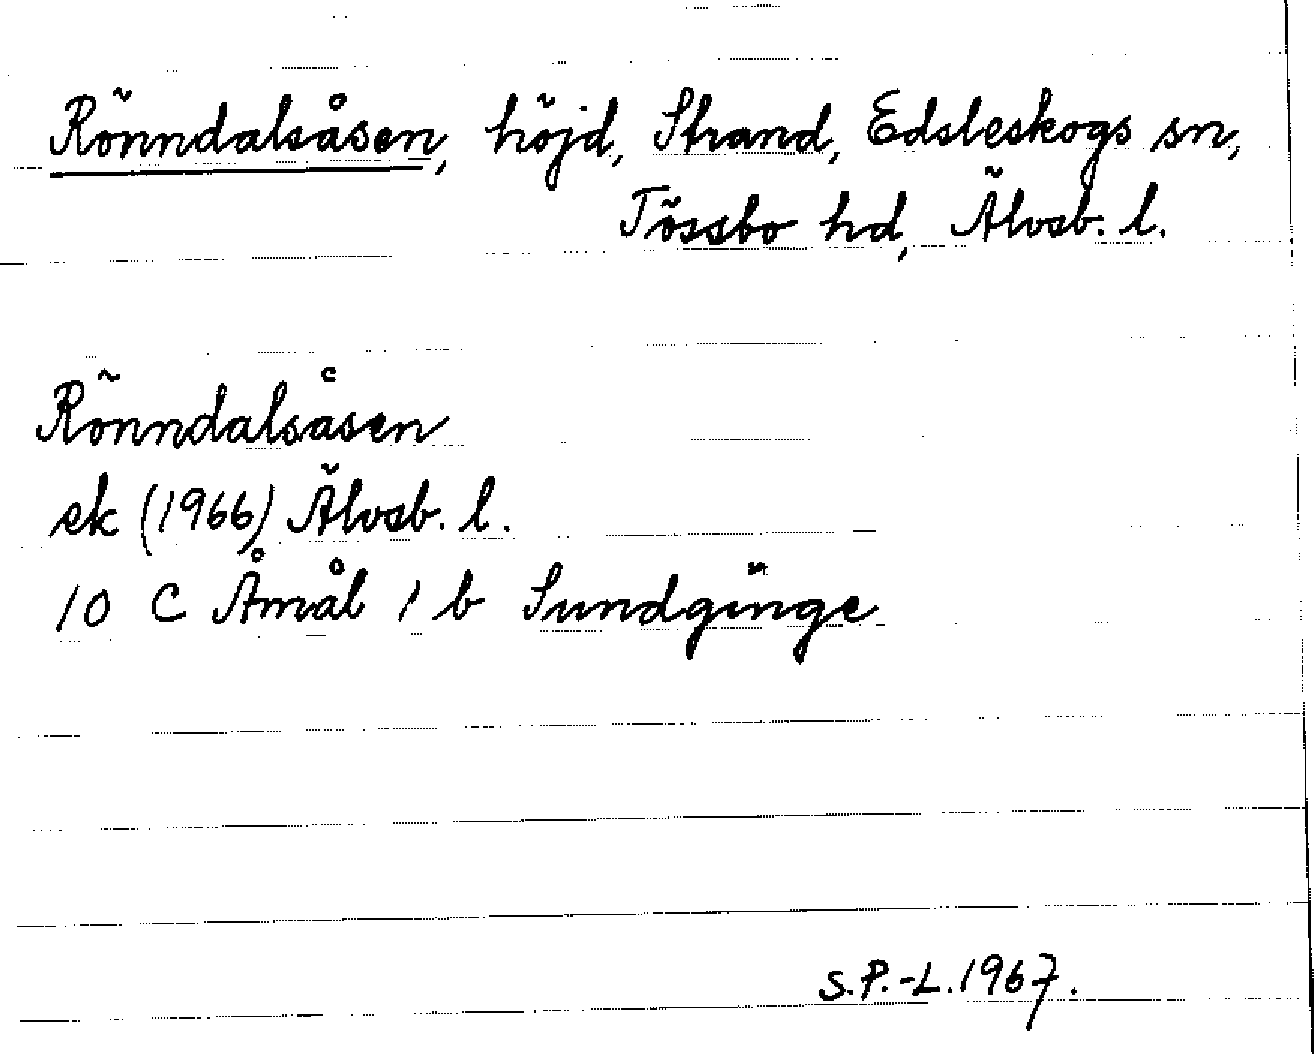 Rönndalsåsen, höjd, Strand, Edsleskogs sn,
Tössbo hd, Älvsb. l.
Rönndalsåsen
ek (1966) Älvsb. l.
10 C Åmål 1 b Sundgïnge
S.P.-L.1967.